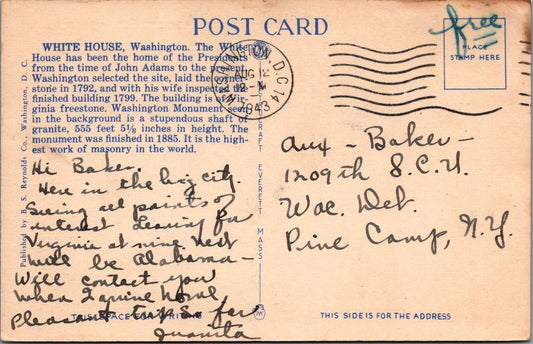 POST CARD
free
PLACE
STAMP HERE
WASHINGTON, D.C. 14
AUG 12
12-M
1943
WHITE HOUSE, Washington. The White
House has been the home of the Presidents
from the time of John Adams to the present.
Washington selected the site, laid the corner-
stone in 1792, and with his wife inspected the
finished building 1799. The building is of Vir-
ginia freestone. Washington Monument seen
in the background is a stupendous shaft of
granite, 555 feet 5⅛ inches in height. The
monument was finished in 1885. It is the high-
est work of masonry in the world.
Published by B. S. Reynolds Co., Washington, D. C.
EVERETT MASS
Hi Baker.
Here in the big city.
Seeing all points of
interest Leaving for
Virginia at nine. Next
will be Alabama -
Will contact you
when I arrive
Pleasant trip so far
Juanita
THIS SPACE FOR WRITING
Aux - Baker -
1209th S.C.U.
Wac. Det.
Pine Camp, N.Y.
THIS SIDE IS FOR THE ADDRESS